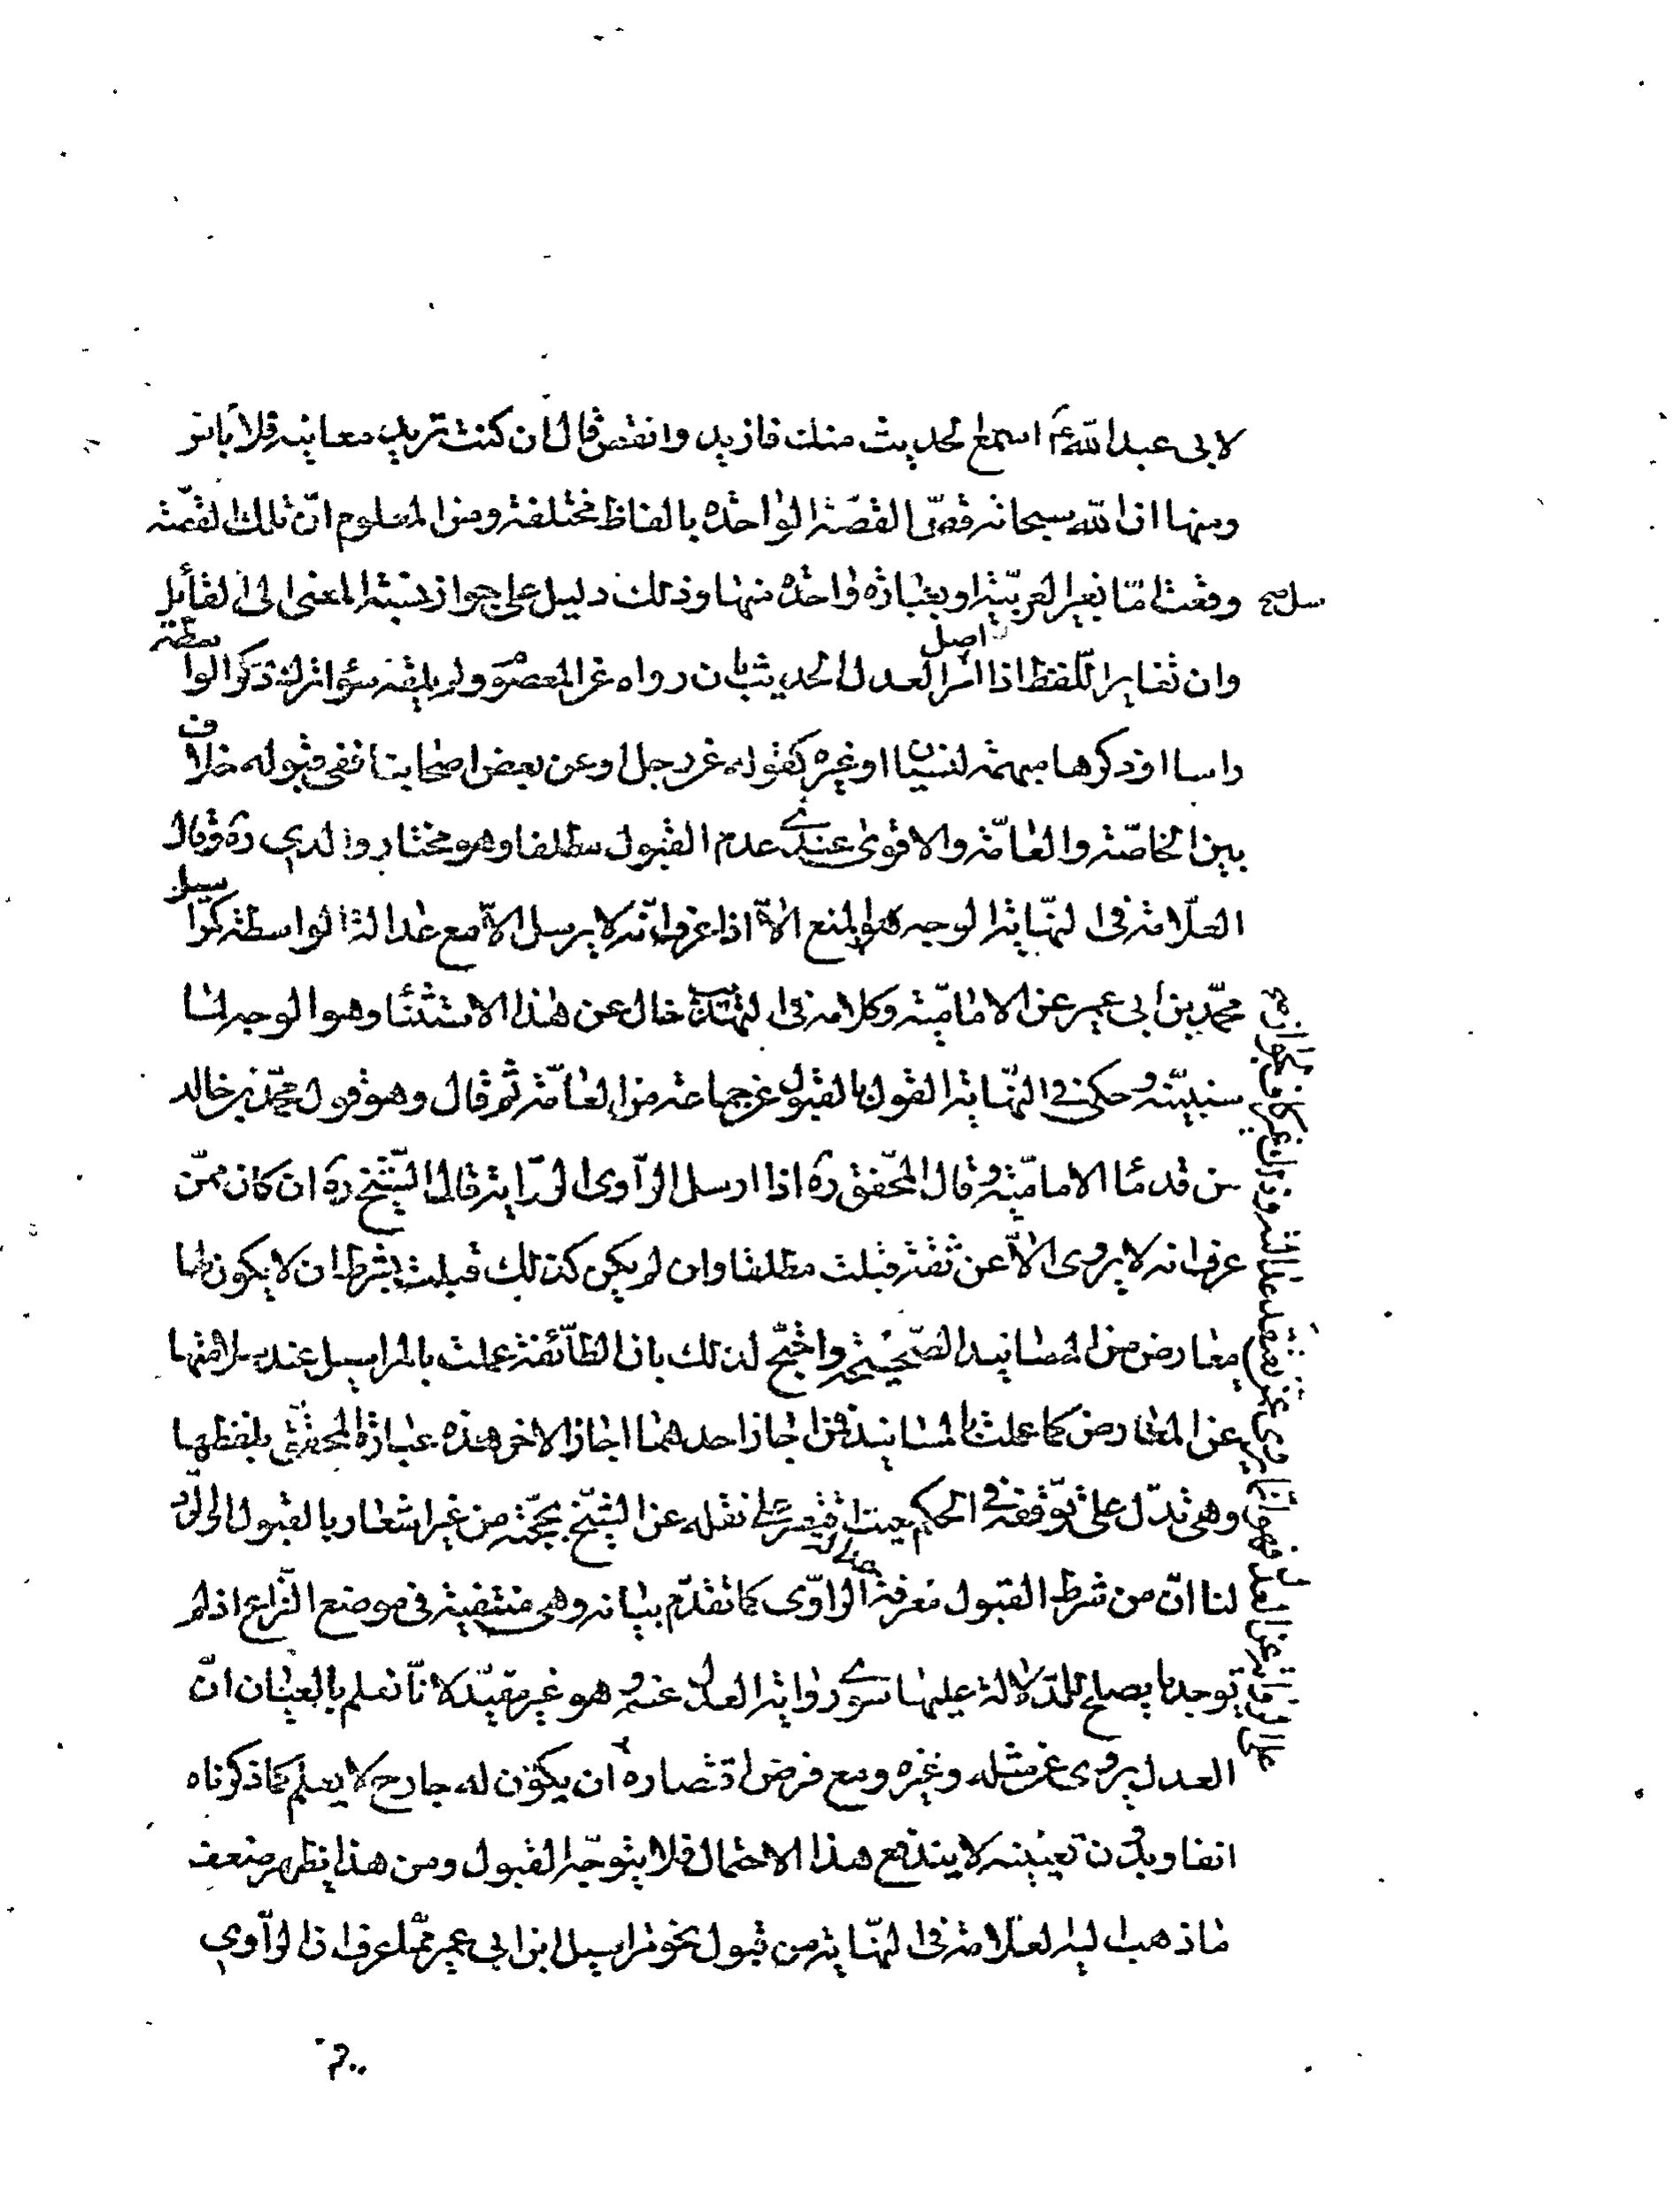 لابى عبد الله ع اسمع الحديث منك فازيد وانقص قال ان كنت تريد معانيه فلا باس
ومنها ان الله سبحانه قص القصة الواحدة بالفاظ مختلفة ومن المعلوم ان تلك القصة
وقعت اما بغير العربية او بعبارة واحدة منها وذلك دليل على جواز نسبة المعنى الى القائل
وان تغاير اللفظ اصل اذا ارسل العدل الحديث بان رواه عن المعصوم ولم يلقه سواء ترك ذكر الواسطة
راسا او ذكرها مبهمة لنسيان او غيره كقوله عن رجل او عن بعض اصحابنا ففى قبوله خلاف
بين الخاصة والعامة والاقوى عندى عدم القبول مطلقا وهو مختار والدي ره وقال
العلامة فى النهاية الوجه المنع الا اذا عرف انه لا يرسل الا مع عدالة الواسطة كمراسيل
محمد بن ابى عمير من الامامية وكلامه فى التهذيب خال عن هذا الاستثناء وهو الوجه لما
سنبينه وحكى فى النهاية القول بالقبول عن جماعة من العامة ثم قال وهو قول محمد بن خالد
من قدماء الامامية وقال المحقق ره اذا ارسل الراوى الرواية قال الشيخ ره ان كان ممن
عرف انه لا يروى الا عن ثقة قبلت مطلقا وان لم يكن كذلك قبلت بشرط ان لا يكون لها
معارض من المسانيد الصحيحة واحتج لذلك بان الطائفة عملت بالمراسيل عند سلامتها
عن المعارض كما عملت بالمسانيد فمن اجاز احدهما اجاز الاخر هذه عبارة المحقق بلفظها
وهى تدل على توقفه فى الحكم حيث اقتصر على نقله عن الشيخ بحجته من غير اشعار بالقبول او الرد
لنا ان من شرط القبول معرفة عدالة الراوى كما تقدم بيانه وهى منتفية فى موضع النزاع اذ لم
يوجد ما يصلح للدلالة عليها سوى رواية العدل عنه وهو غير مفيد لانا نعلم بالعيان ان
العدل يروى عن مثله وغيره ومع فرض اقتصاره ان يكون له جارح لا يعلم كما ذكرناه
انفا وبدون تعيينه لا يندفع هذا الاحتمال فلا يتوجه القبول ومن هذا يظهر ضعف
ما ذهب اليه العلامة فى النهاية من قبول نحو مراسيل ابن ابى عمير مما عرف ان الراوى
على الرواية عن العدل فهو انما يروى عمن يعتقد عدالته وذلك غير كاف لجواز